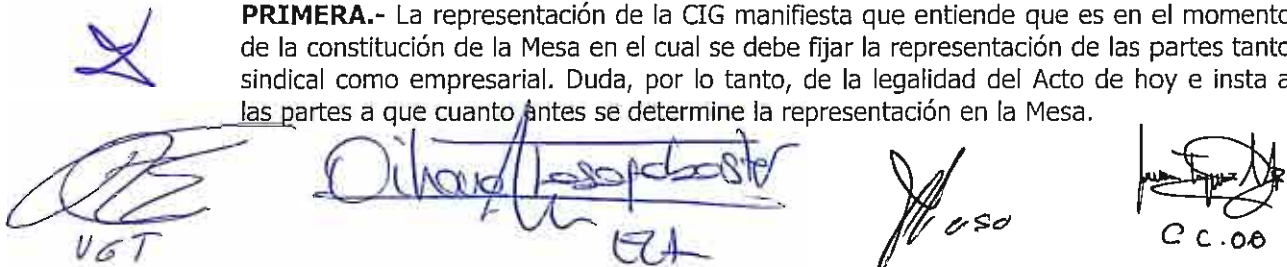 PRIMERA.- La representación de la CIG manifiesta que entiende que es en el momento
de la constitución de la Mesa en el cual se debe fijar la representación de las partes tanto
sindical como empresarial. Duda, por lo tanto, de la legalidad del Acto de hoy e insta a
las partes a que cuanto antes se determine la representación en la Mesa.
UGT
ELA
USO
CC.OO